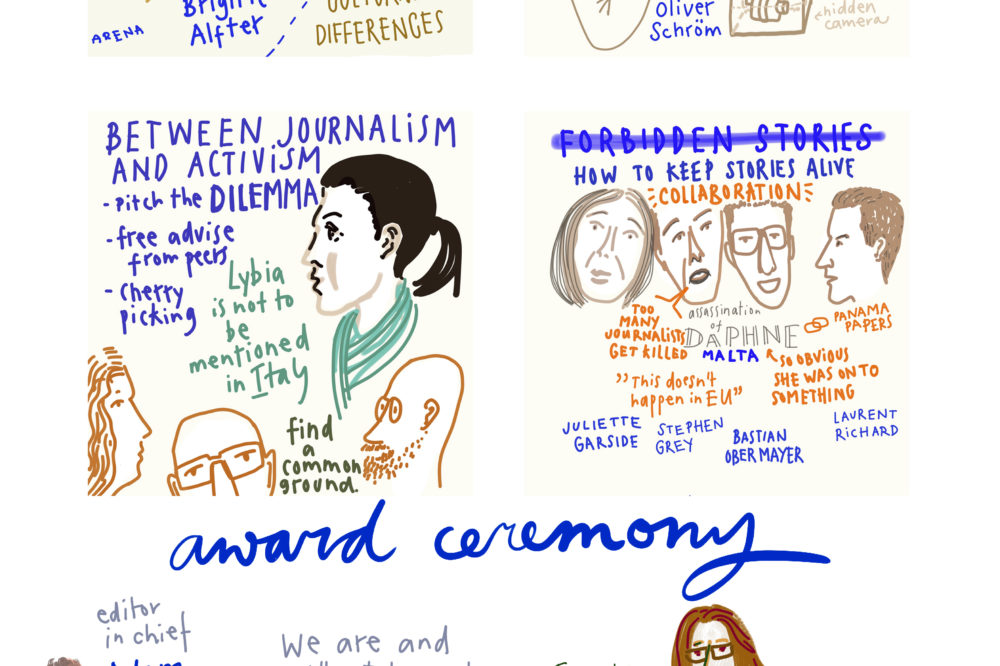 Alfter
ARENA
DIFFERENCES
Oliver
Schröm
hidden
camera
BETWEEN JOURNALISM
AND ACTIVISM
- Pitch the DILEMMA
- free advise
from peers
- Cherry
picking
Lybia
is not to
be
mentioned
in Italy
find
a
common
ground.
FORBIDDEN STORIES
HOW TO KEEP STORIES ALIVE
COLLABORATION
TOO
MANY
JOURNALISTS
GET KILLED
assassination
of
DAPHNE
MALTA
PANAMA
PAPERS
SO OBVIOUS
SHE WAS ON TO
SOMETHING
"This doesn't
happen in EU"
JULIETTE
GARSIDE
STEPHEN
GREY
BASTIAN
OBERMAYER
LAURENT
RICHARD
award ceremony
editor
in chief
We are and